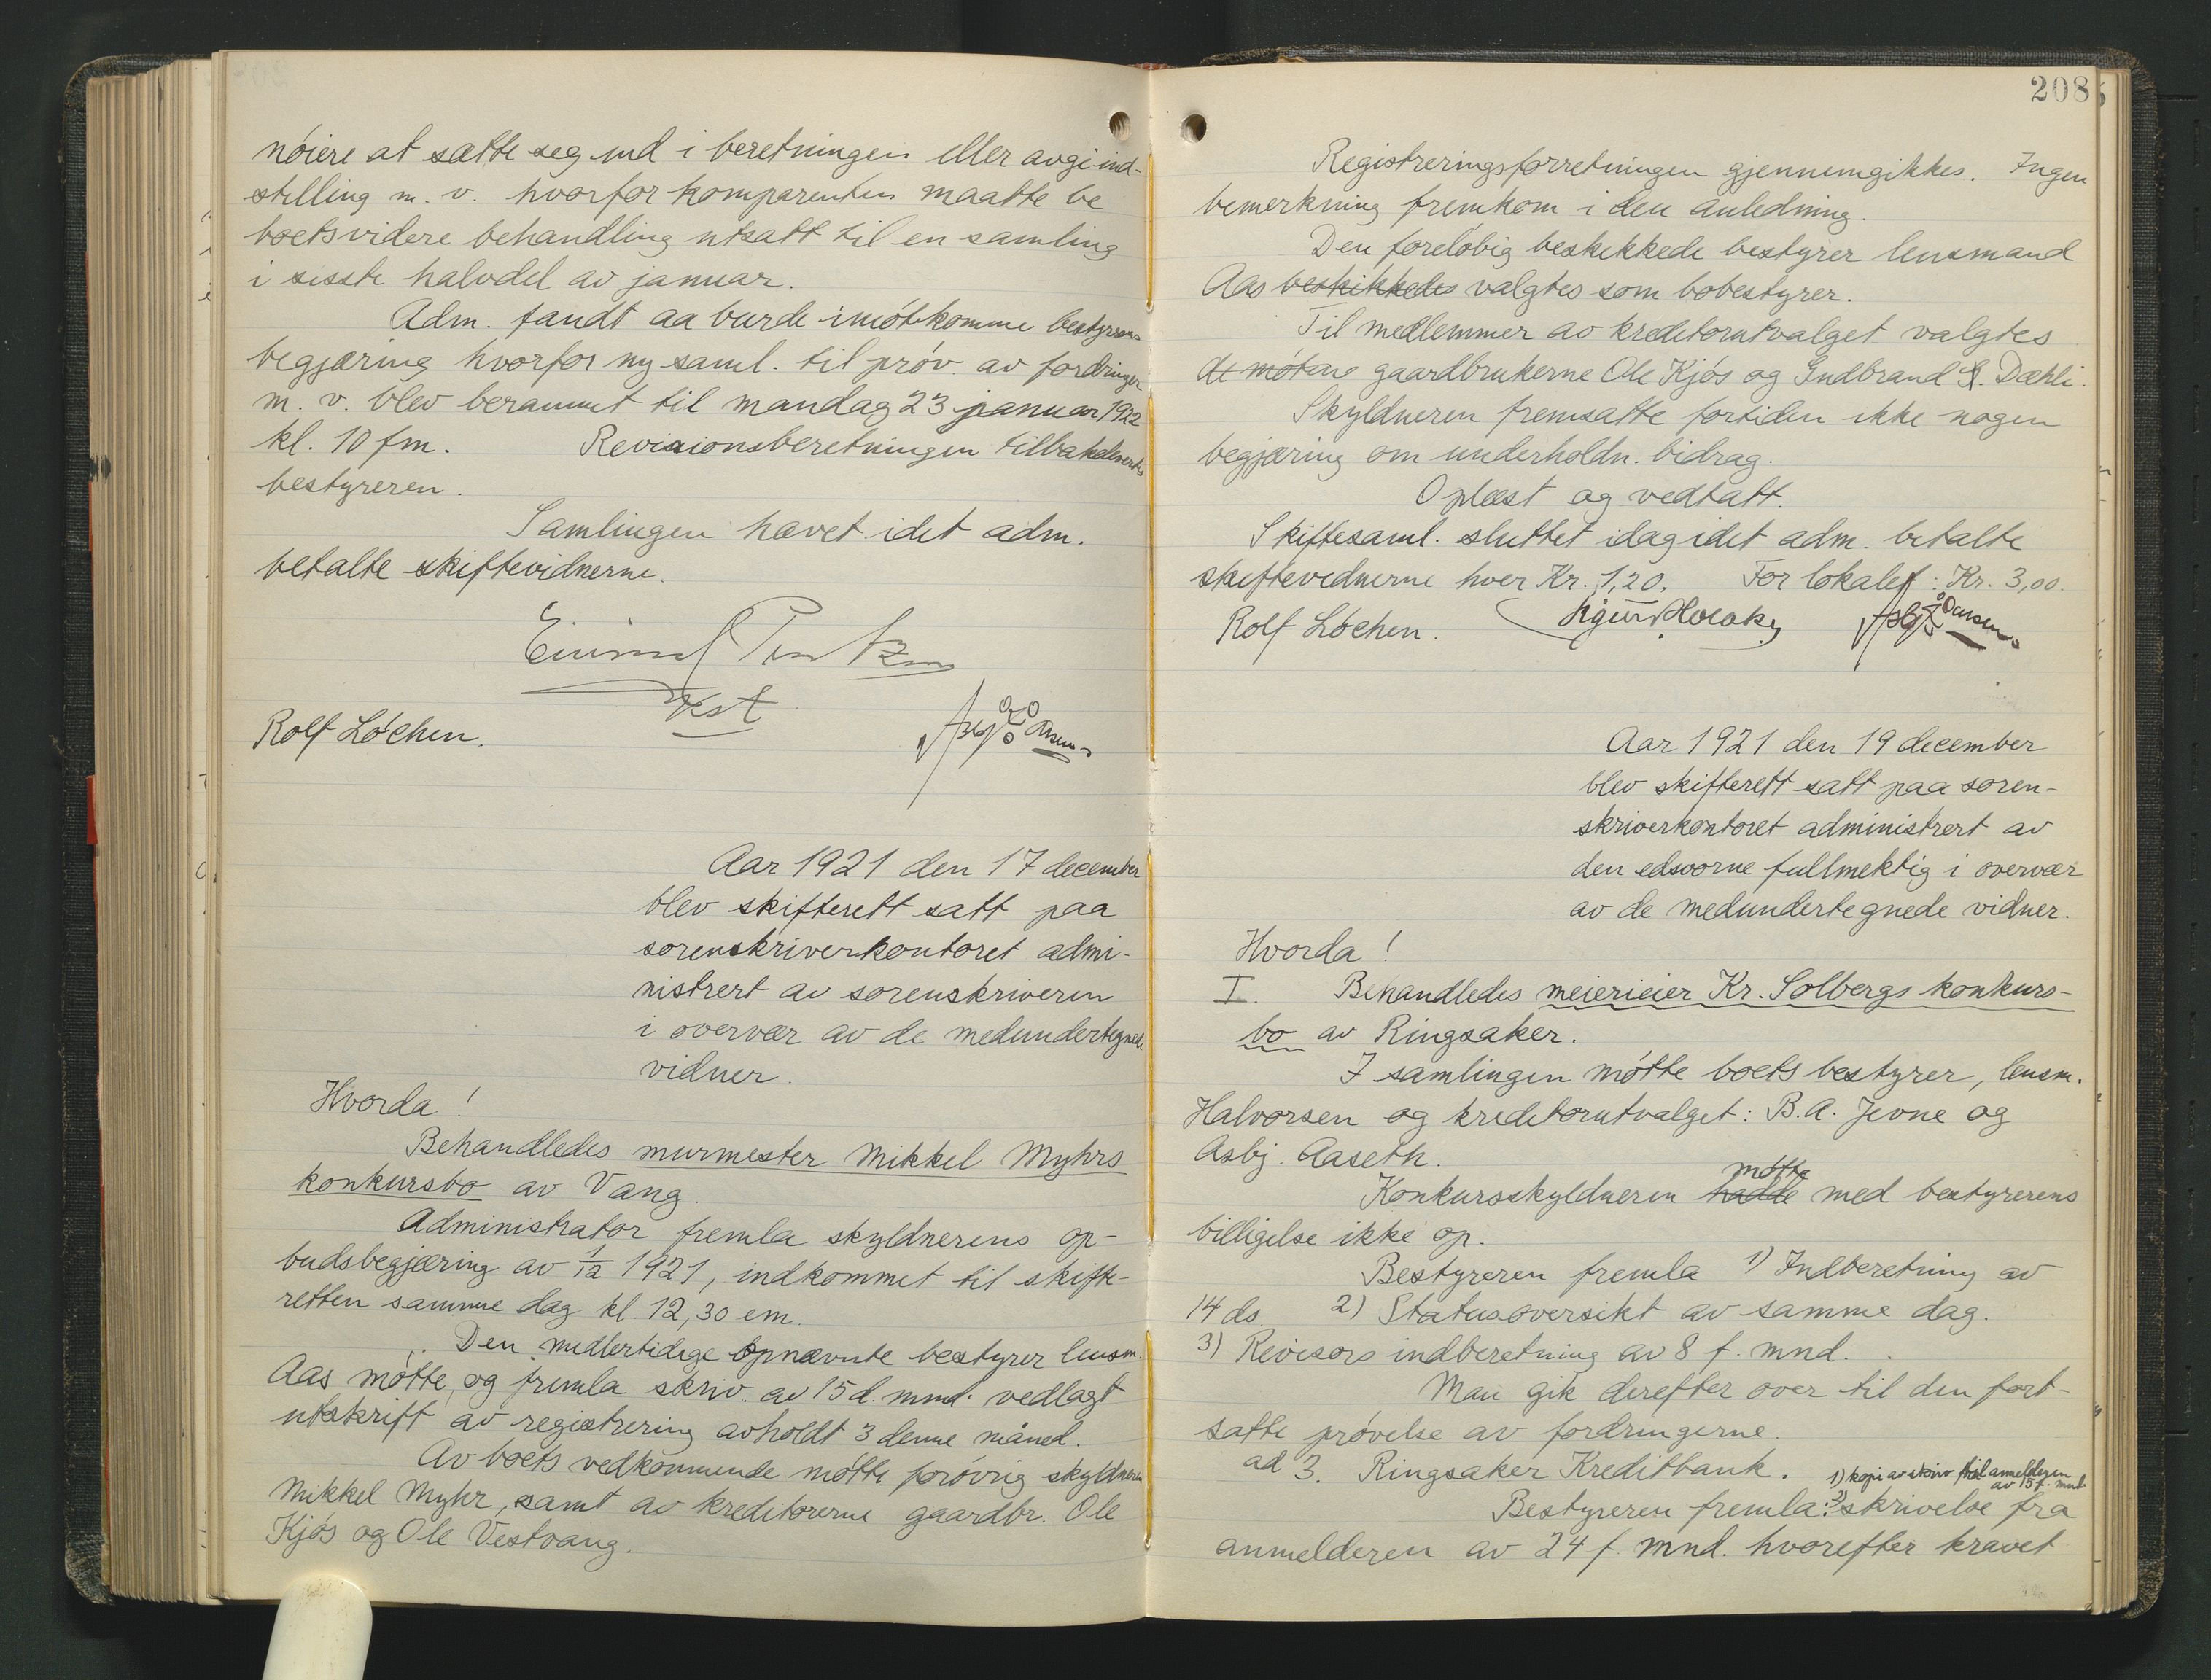 nöiere at sætte seg ind i beretningen eller avgi ind-
stilling m. v. hvorfor komparenten maatte be
boets videre behandling utsatt til en samling
i sisste halvdel av januar.
Adm. fandt aa burde imötekomme bestyrerens
begjæring hvorfor ny saml. til pröv. av fordringer
m. v. blev berammet til mandag 23 januar 1922
kl. 10 fm. Revisionsberetningen tilbakelevertes
bestyreren.
Samlingen hævet idet adm.
betalte skiftevidnerne.
Rolf Löchen.
Aar 1921 den 17 december
blev skifterett satt paa
sorenskriverkontoret admi-
nistrert av sorenskriveren
i overvær av de medundertegnede
vidner.
Hvorda!
Behandledes murmester Mikkel Myhrs
konkursbo av Vang.
Administrator fremla skyldnerens op-
budsbegjæring av 1/12 1921, indkommet til skifte-
retten samme dag kl. 12,30 em.
Den midlertidige opnævnte bestyrer lensm.
Aas mötte, og fremla skriv. av 15 d. mnd. vedlagt
utskrift av registrering avholdt 3 denne måned.
Av boets vedkommende mötte forövrig skyldneren
Mikkel Myhr, samt av kreditorerne gaardbr. Ole
Kjös og Ole Vestvang.
208
Registreringsforretningen gjennemgikkes. Ingen
bemerkning fremkom i den anledning.
Den foreløbig beskikkede bestyrer lensmand
Aas beskikkedes valgtes som bobestyrer.
Til medlemmer av kreditorutvalget valgtes
de mötene gaardbrukerne Ole Kjös og Gudbrand S. Dæhli.
Skyldneren fremsatte fortiden ikke nogen
begjæring om underholdn. bidrag.
Oplæst og vedtatt.
Skiftesaml. sluttet idag idet adm. betalte
skiftevidnerne hver Kr. 1,20. For lokalet: Kr. 3,00.
Rolf Löchen.
Aar 1921 den 19 december
blev skifterett satt paa soren-
skriverkontoret administrert av
den edsvorne fullmektig i overvær
av de medundertegnede vidner.
Hvorda!
I. Behandledes meierieier Kr. Solbergs konkurs-
bo av Ringsaker.
I samlingen mötte boets bestyrer, lensm.
Halvorsen og kreditorutvalget: B. A. Jevne og
Asbj. Aaseth.
mötte
Konkursskyldneren hadde med bestyrerens
billigelse ikke op.
Bestyreren fremla 1) Indberetning av
14 ds. 2) Statusoversikt av samme dag.
3) Revisors indberetning av 8 f. mnd.
Man gik derefter over til den fort-
satte prövelse av fordringerne.
ad 3. Ringsaker Kreditbank. 1) kopi av skriv til anmelderen
av 15 f. mnd.
Bestyreren fremla: 2) skrivelse fra
anmelderen av 24 f. mnd. hvorefter kravet